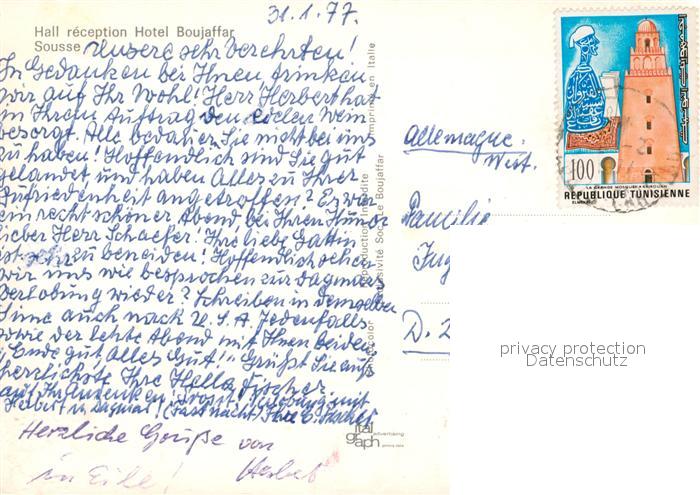 31.1.77.
Hall réception Hotel Boujaffar
Sousse
Unsere sehr verehrten!
In Gedanken bei Ihnen trinken
wir auf Ihr Wohl! Herr Herbert hat
in Ihrem Auftrag den edlen Wein
besorgt. Alle bedauern Sie nicht bei uns
zu haben! Hoffentlich sind Sie gut
gelandet und haben Alles zu Ihrer
Zufriedenheit angetroffen? Es war
ein recht schöner Abend bei Ihren Hunde
lieber Herr Schaefer! Ihre liebe Gattin
ist sehr zu beneiden! Hoffentlich sehen
wir uns wie besprochen zur Dagmars
Verlobung wieder? Schreiben in demselben
Sinne auch nach U.S.A. Jedenfalls
sowie der letzte Abend mit Ihnen beiden
"Ende gut Alles Gut!" Grüßt Sie aufs
herzlichste Ihre Hella Fischer
auf Ihr Andenken! Prosit!
Herbert u. Dagmar! (Fastnacht)
Herzliche Grüße von
in Eile! Herbert
Imprimé en Italie
Reproduction interdite
Exclusivité Sousse Boujaffar
color
ital
graph
advertising
Allemagne.
West.
Familie
D.
100
LA GRANDE MOSQUEE KAIROUAN
REPUBLIQUE TUNISIENNE
الجمهورية التونسية
privacy protection
Datenschutz